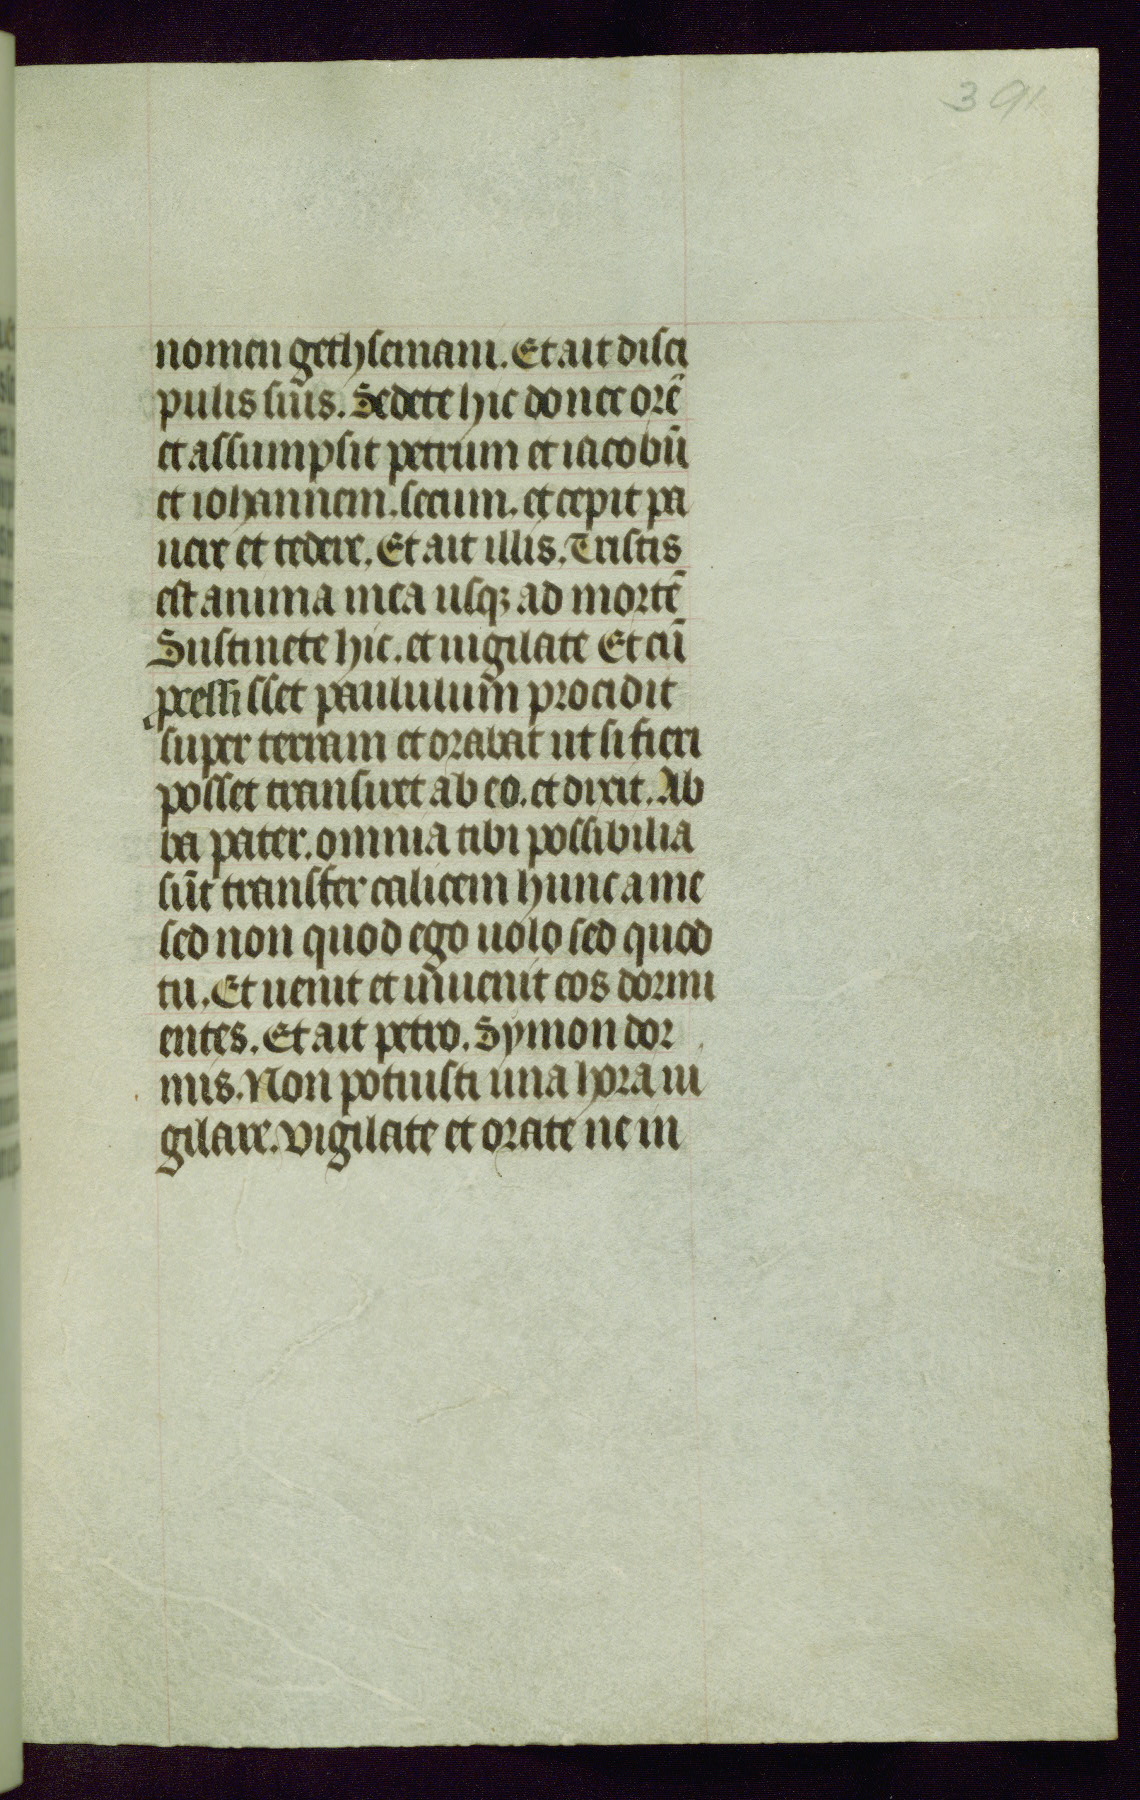 39
nomen gethsemani. Et ait disci
pulis suis. Sedete hic donec orē
et assumpsit petrum et iacobū
et iohannem. secum. et cepit pa
uere et tedere. Et ait illis. Tristis
est anima mea usqꝫ ad mortē
Sustinete hic. et uigilate Et cū
p̱cessisset paululum procidit
super terram et orabat ut si fieri
posset transiret ab eo. et dixit. Ab
ba pater. omnia tibi possibilia
sūt transfer calicem hunc a me
sed non quod ego uolo sed quod
tu. Et uenit et inuenit eos dormi
entes. Et ait petro. Symon dor
mis. Non potuisti una hora ui
gilare. vigilate et orate ne in